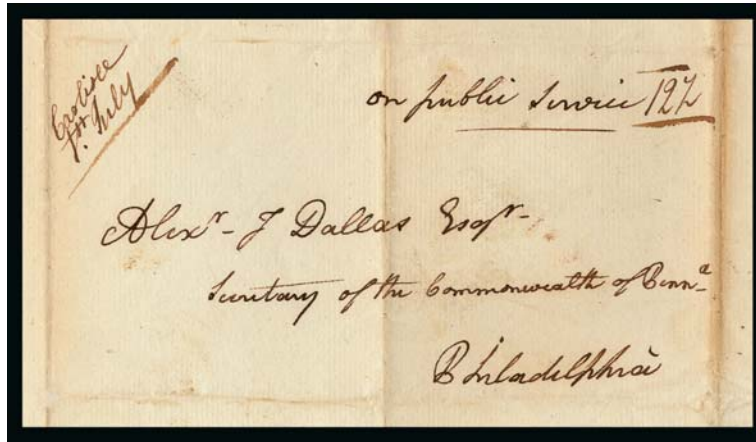 Carlisle
1st July
on public Service 12½
Alexr- J Dallas Esqr-
Secretary of the Commonwealth of Penna
Philadelphia